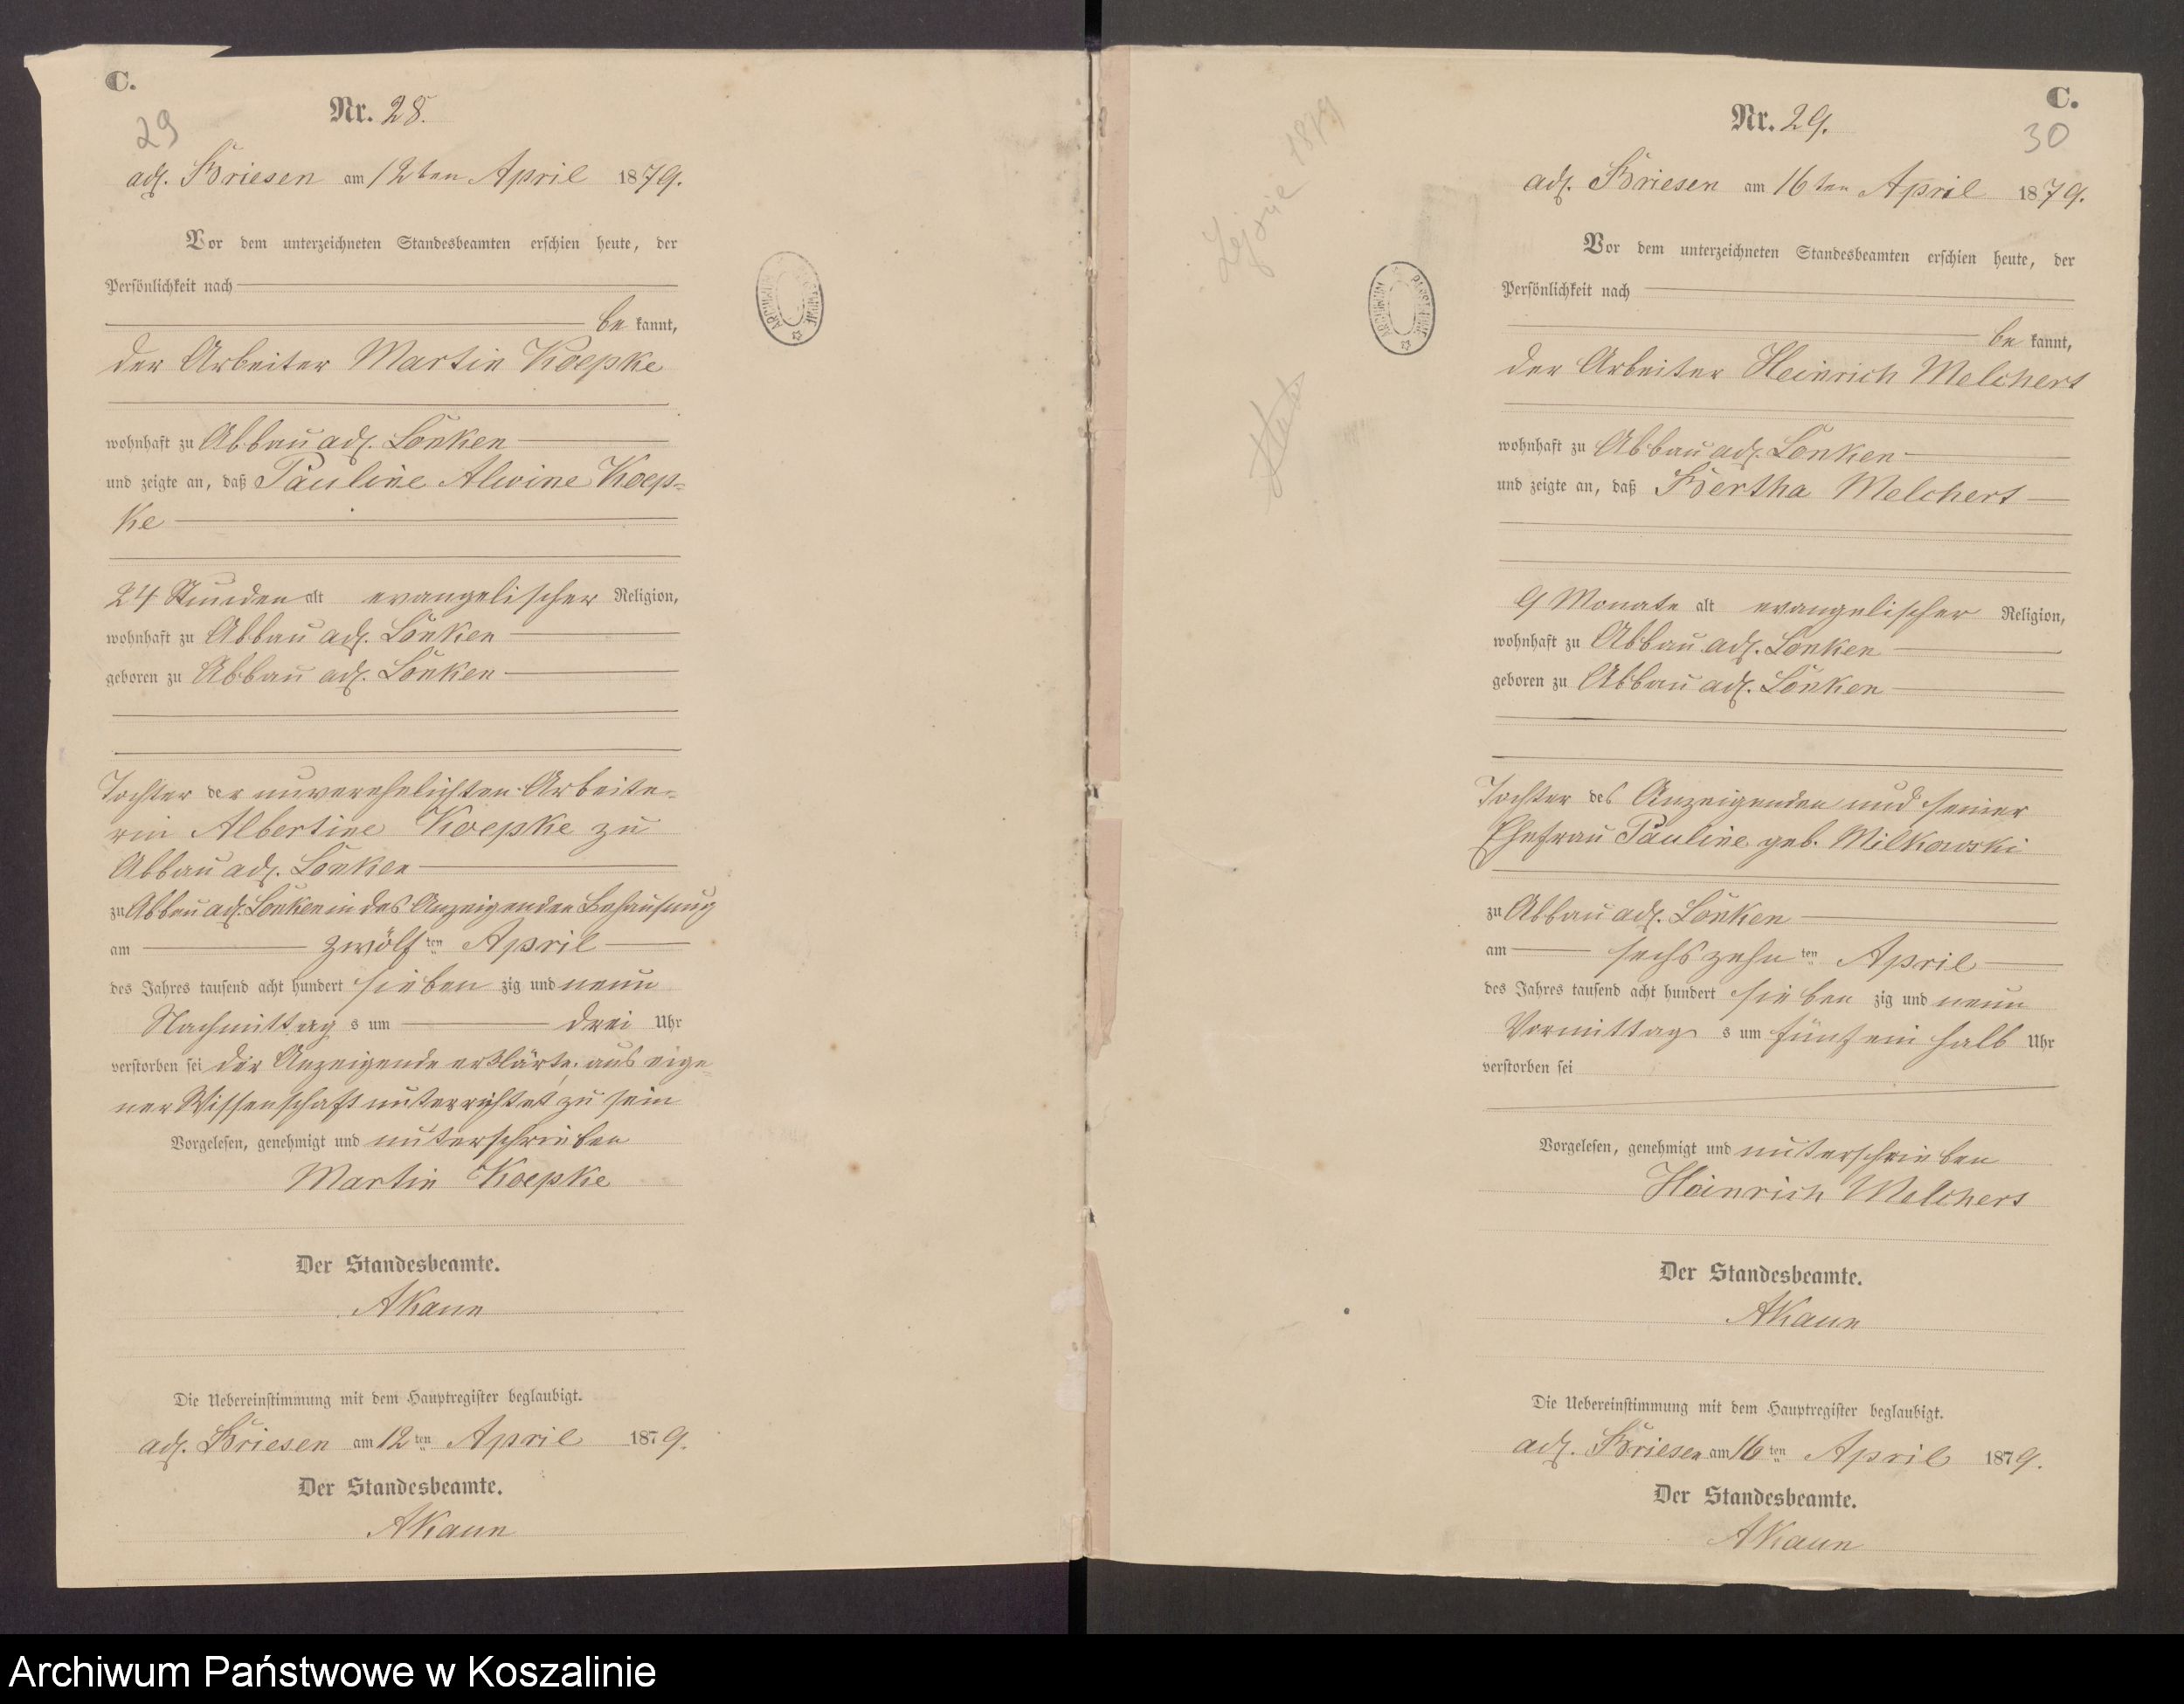 C.
29
Nr. 28.
adl. Briesen am 12ten April 1879.
Vor dem unterzeichneten Standesbeamten erschien heute, der
Persönlichkeit nach
be kannt,
der Arbeiter Martin Koepke
wohnhaft zu Abbau adl. Lonken
und zeigte an, daß Pauline Alwine Koep-
ke
24 Stunden alt evangelischer Religion,
wohnhaft zu Abbau adl. Lonken
geboren zu Abbau adl. Lonken
Tochter der unverehelichten Arbeite-
rin Albertine Koepke zu
Abbau adl. Lonken
zu Abbau adl. Lonken in des Anzeigenden Behausung
am zwölf ten April
des Jahres tausend acht hundert sieben zig und neun
Nachmittag s um drei Uhr
verstorben sei der Anzeigende erklärte, aus eige-
ner Wissenschaft unterrichtet zu sein
Vorgelesen, genehmigt und unterschrieben
Martin Koepke
Der Standesbeamte.
AKaun
Die Uebereinstimmung mit dem Hauptregister beglaubigt.
adl. Briesen am 12 ten April 1879.
Der Standesbeamte.
AKaun
C.
30
Nr. 29.
adl. Briesen am 16ten April 1879.
Vor dem unterzeichneten Standesbeamten erschien heute, der
Persönlichkeit nach
be kannt,
der Arbeiter Heinrich Melchert
wohnhaft zu Abbau adl. Lonken
und zeigte an, daß Bertha Melchert
9 Monate alt evangelischer Religion,
wohnhaft zu Abbau adl. Lonken
geboren zu Abbau adl. Lonken
Tochter des Anzeigenden und seiner
Ehefrau Pauline geb. Milkowski
zu Abbau adl. Lonken
am sechszehn ten April
des Jahres tausend acht hundert sieben zig und neun
Vormittag s um fünf ein halb Uhr
verstorben sei
Vorgelesen, genehmigt und unterschrieben
Heinrich Melchert
Der Standesbeamte.
AKaun
Die Uebereinstimmung mit dem Hauptregister beglaubigt.
adl. Briesen am 16 ten April 1879.
Der Standesbeamte.
AKaun
Archiwum Państwowe w Koszalinie